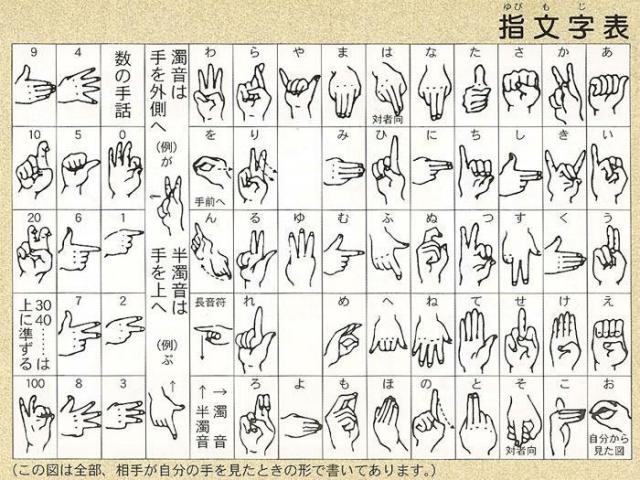 ゆび も じ
指文字表
あ
い
う
え
お
自分から
見た図
か
き
く
け
こ
さ
し
す
せ
そ
対者向
た
ち
つ
て
と
な
に
ぬ
ね
の
は
対者向
ひ
ふ
へ
ほ
ま
み
む
め
も
や
ゆ
よ
ら
り
る
れ
ろ
わ
を
手前へ
ん
長音符
→濁音
↑半濁音
濁音は
手を外側へ
(例)が
半濁音は
手を上へ
(例)ぷ
数の手話
0
1
2
3
4
5
6
7
8
9
10
20
30
40……は
上に準ずる
100
(この図は全部、相手が自分の手を見たときの形で書いてあります。)